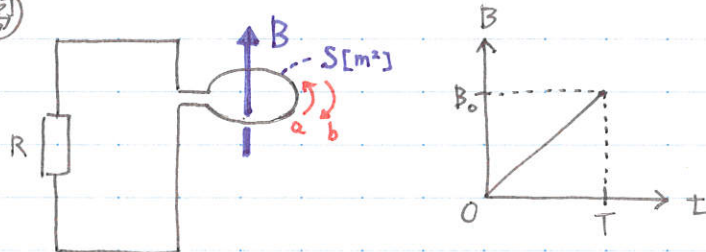 例
B
S[m²]
a b
R
B
B₀
O
T
t